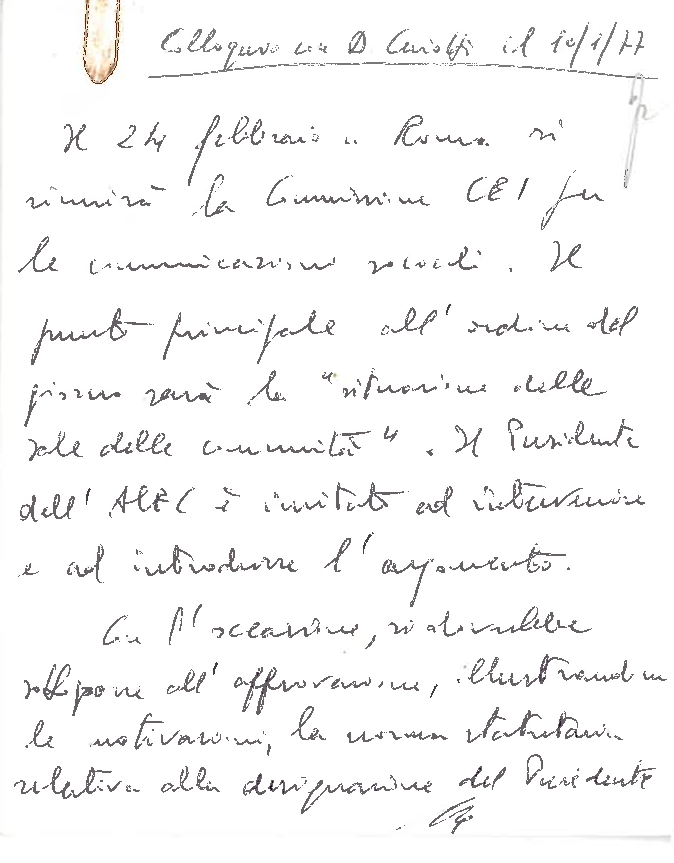 Colloquio con D. il 10/1/77
Il 24 febbraio a Roma si
riunirà la Commissione CEI per
le comunicazioni sociali. Il
punto principale all'ordine del
giorno sarà la "situazione delle
sale delle comunità". Il Presidente
dell' ACEC è invitato ad intervenire
e ad introdurre l'argomento.
Con l'occasione, si dovrebbe
sottoporre all'approvazione, illustrandone
le motivazioni, la norma statutaria
relativa alla designazione del Presidente